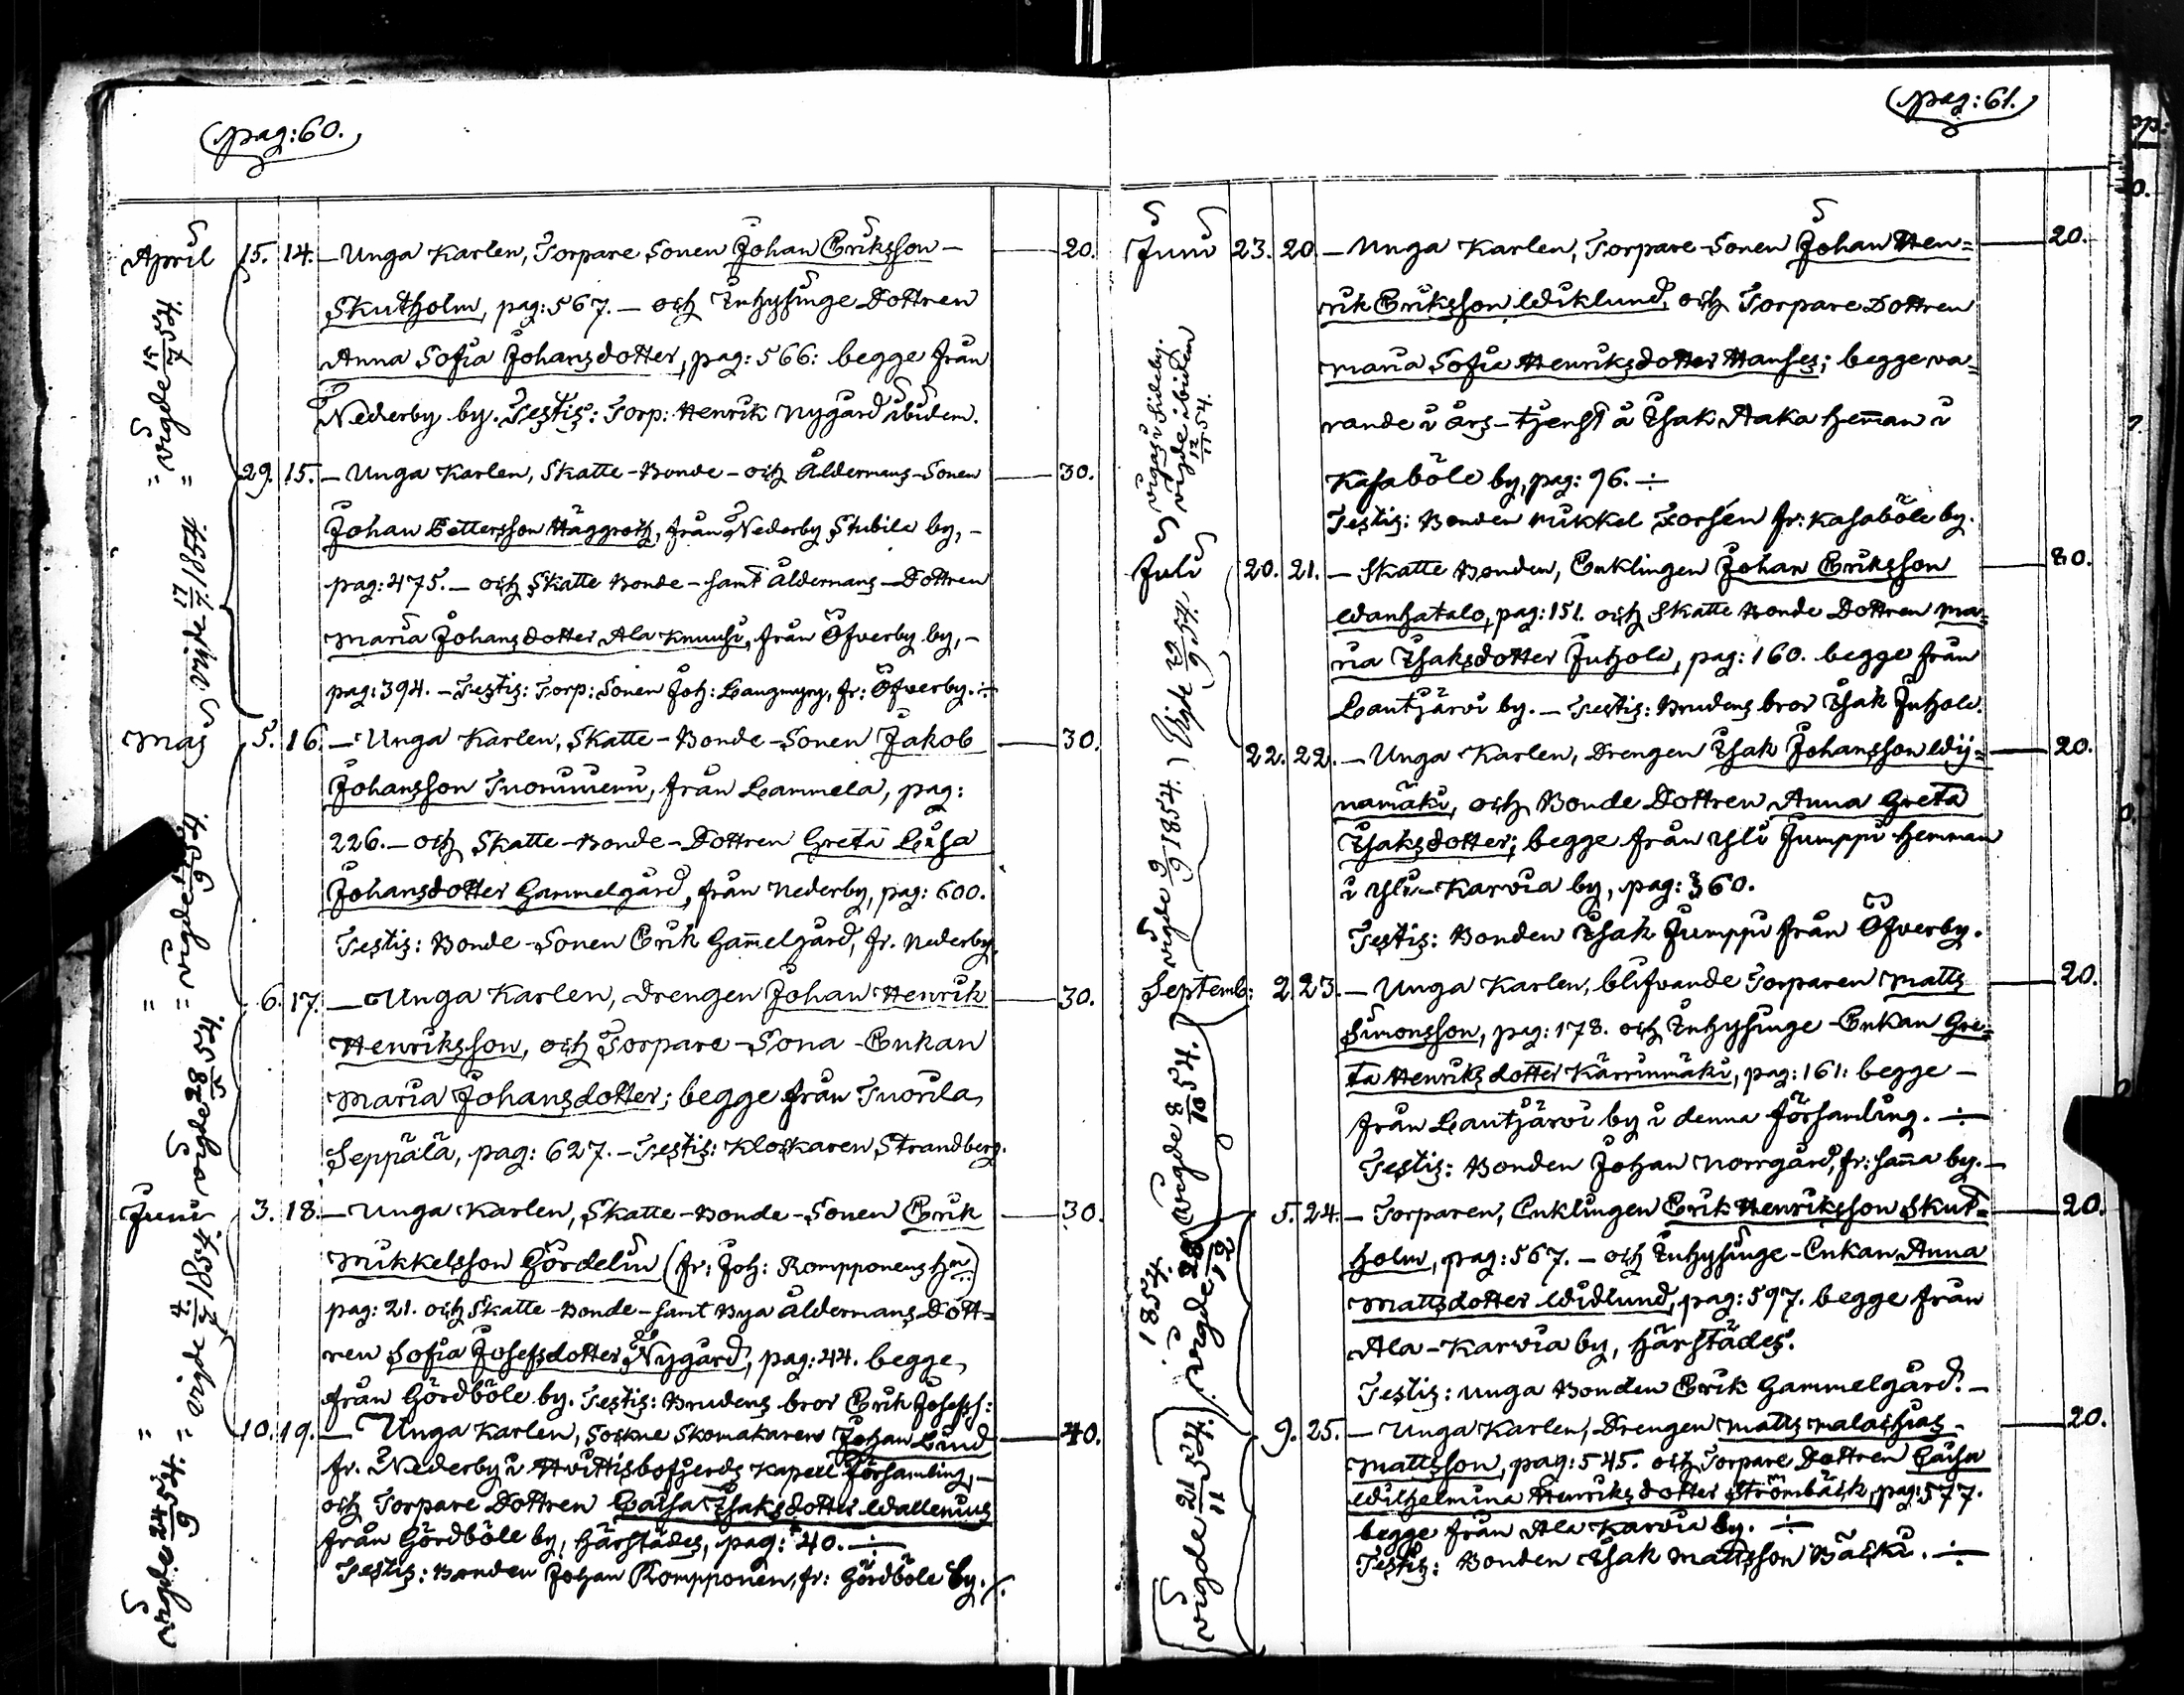 (pag: 60.)
April 15. 14. — Unga Karlen, Torpare Sonen Johan Eriksson — 20.
Skutholm, pag: 567. — och Inhysinge Dottren
Anna Sofia Johansdotter, pag: 566: begge från
Nederby by. Testis: Torp: Henrik Nygård ibidem.
= vigde 15/7 54.
29. 15. — Unga Karlen, Skatte-Bonde- och Åldermans-Sonen — 30.
Johan Pettersson Häggroth, från Nederby Stubile by, —
pag: 475. — och Skatte Bonde- samt Åldermans-Dottren
Maria Johansdotter Ala Knuusi, från Öfverby by, —
pag: 394. — Testis: Torp: Sonen Joh: Langmyry, fr: Öfverby. ÷
vigde 17/7. 1854.
Maj 5. 16. — Unga Karlen, Skatte-Bonde-Sonen Jakob — 30.
Johansson Tuorniemi, från Lammela, pag:
226. — och Skatte-Bonde-Dottren Greta Lisa
Johansdotter Gammelgård, från Nederby, pag: 600.
Testis: Bonde-Sonen Erik Gam̄elgård, fr. Nederby.
= vigde 9 54.
" 6. 17. — Unga Karlen, Drengen Johan Henrik — 30.
Henriksson, och Torpare-Sona-Enkan
Maria Johansdotter; begge från Tuorila,
Seppälä, pag: 627. — Testis: Klockaren Strandberg.
vigde 28/5 54.
Juni 3. 18. — Unga Karlen, Skatte-Bonde-Sonen Erik — 30.
Mikkelsson Gördelin (fr: Joh: Rompponens Hn:)
pag: 21. och Skatte-Bonde-samt Bya åldermans Dott=
ren Sofia Josefsdotter Nygård, pag: 44. begge,
från Gördböle by. Testis: Brudens bror Erik Josefss:
= vigde 4/7 1854.
" 10. 19. — Unga Karlen, Sockne Skomakaren Johan Lind — 40.
fr. Nederby i Hvittisbofjerds Kapell församling, —
och Torpare Dottren Caisa Isaksdotter Wallenius
från Gördböle by, härstädes, pag: 40. ÷
Testis: Bonden Johan Rompponen, fr: Gördböle by. ÷
vigde 24/9 54.
(pag: 61.)
Juni 23. 20. — Unga Karlen, Torpare-Sonen Johan Hen= — 20.
rik Eriksson Wiklund, och Torpare Dottren
Maria Sofia Henriksdotter Hanses; begge va=
rande i års-tjenst å Isak Aaka Hem̄an i
Kasaböle by, pag: 96. ÷
Testis: Bonden Mikkel Forsén fr: Kasaböle by.
vigas i Sideby.
vigde ibidem
12/11 54.
Juli 20. 21. — Skatte Bonden, Enklingen Johan Eriksson — 80.
Wanhatalo, pag: 151. och Skatte Bonde Dottren Ma=
ria Isaksdotter Juhola, pag: 160. begge från
Lautjärvi by. — Testis: Brudens bror Isak Juhola.
Vigde 29/9 54.
22. 22. — Unga Karlen, Drengen Isak Johansson Wij= — 20.
namäki, och Bonde Dottren Anna Greta
Isaksdotter; begge från Yli Jumppi Hemman
i Yli-Karvia by, pag: 360.
Testis: Bonden Isak Jumppi från Öfverby.
vigde 9/9 1854.
Septemb: 2. 23. — Unga Karlen, blifvande Torparen Matts — 20.
Simonsson, pag: 178. och Inhysinge-Enkan Gre=
ta Henriksdotter Kärrinmäki, pag: 161: begge —
från Lautjärvi by i denna församling. ÷
Testis: Bonden Johan Norrgård, fr: sam̄a by. —
vigde 8/10 54.
5. 24. — Torparen, Enklingen Erik Henriksson Skut= — 20.
holm, pag: 567. — och Inhysinge-Enkan Anna
Mattsdotter Widlund, pag: 597. begge från
Ala-Karvia by, härstädes.
Testis: Unga Bonden Erik Gammelgård. —
vigde 28/12 1854.
9. 25. — Unga Karlen, Drengen Matts Malachias — 20.
Mattsson, pag: 545. och Torpare Dottren Caisa
Wilhelmina Henriksdotter Strömbäck, pag: 577.
begge från Ala Karvia by. ÷
Testis: Bonden Isak Mattsson Bäcki. ÷
vigde 21/11 54.